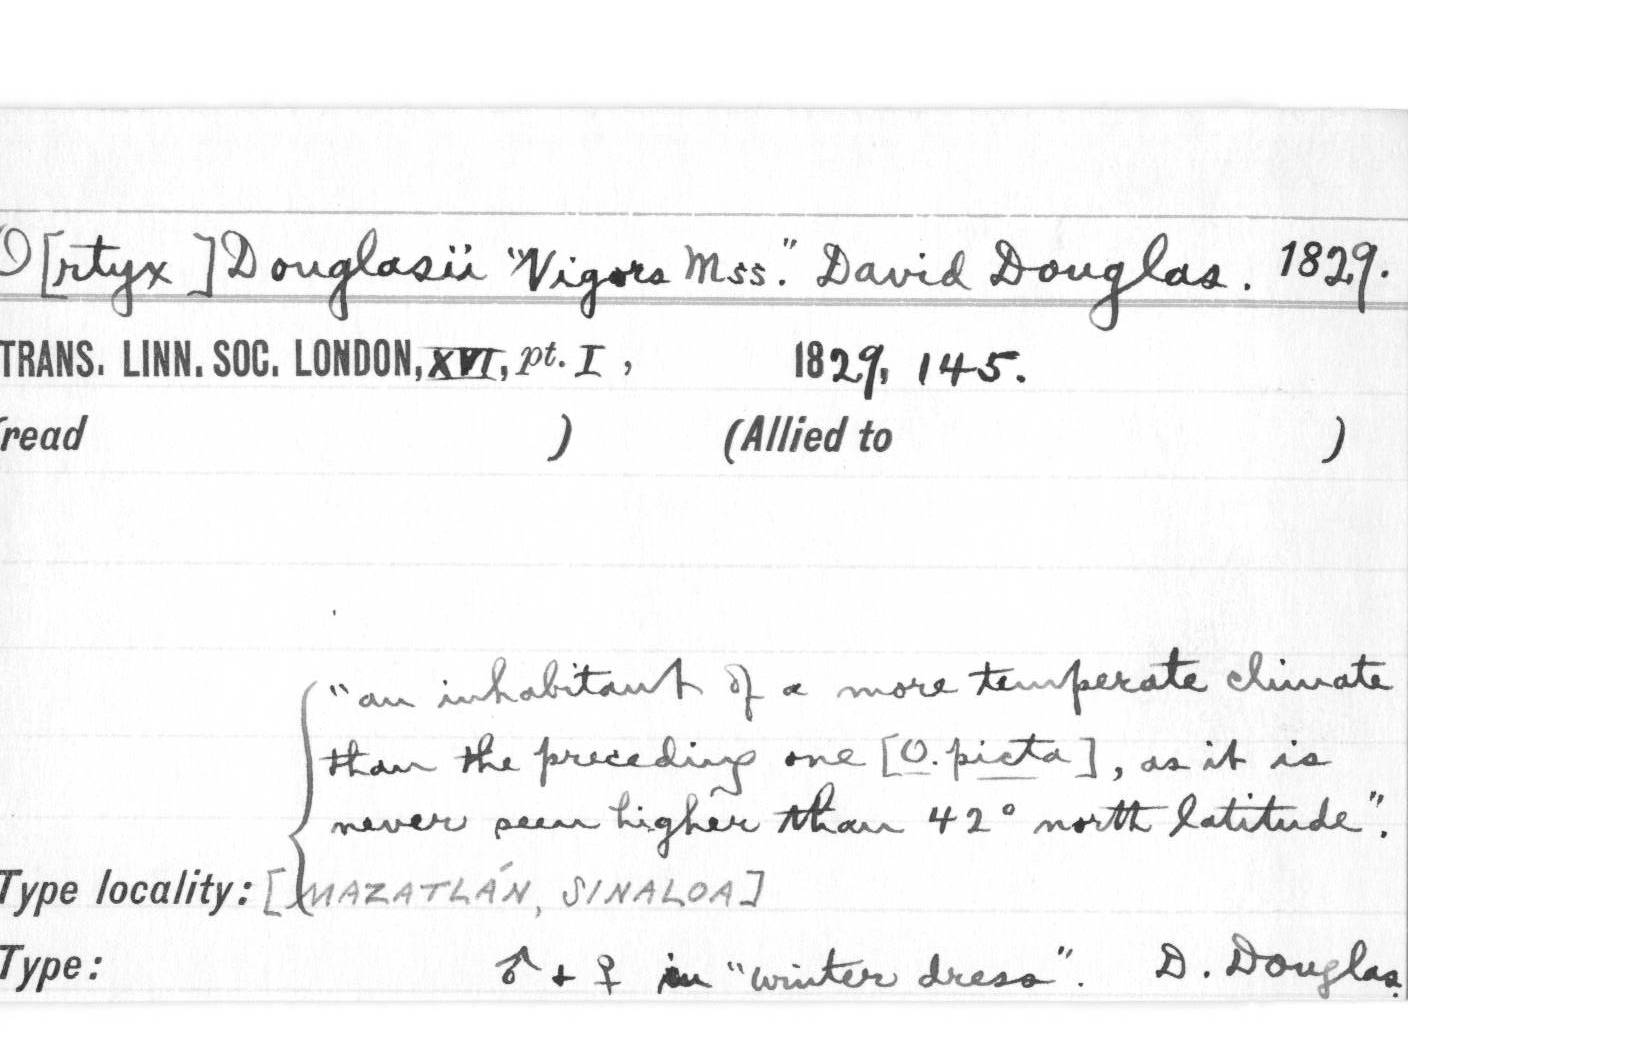 O[rtyx] Douglasii "Vigors Mss." David Douglas. 1829.
TRANS. LINN. SOC. LONDON, XVI, pt. I, 1829, 145.
(read ) (Allied to )
"an inhabitant of a more temperate climate
than the preceding one [O. picta], as it is
never seen higher than 42° north latitude".
Type locality: [MAZATLÁN, SINALOA]
Type: ♂ + ♀ in "winter dress". D. Douglas.